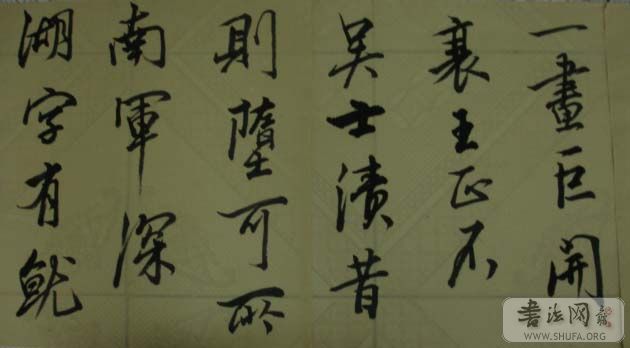 一畫巨開
襄王正不
吴士漬昔
則墮可所
南軍深
湖字有魷
书法网
WWW.SHUFA.ORG